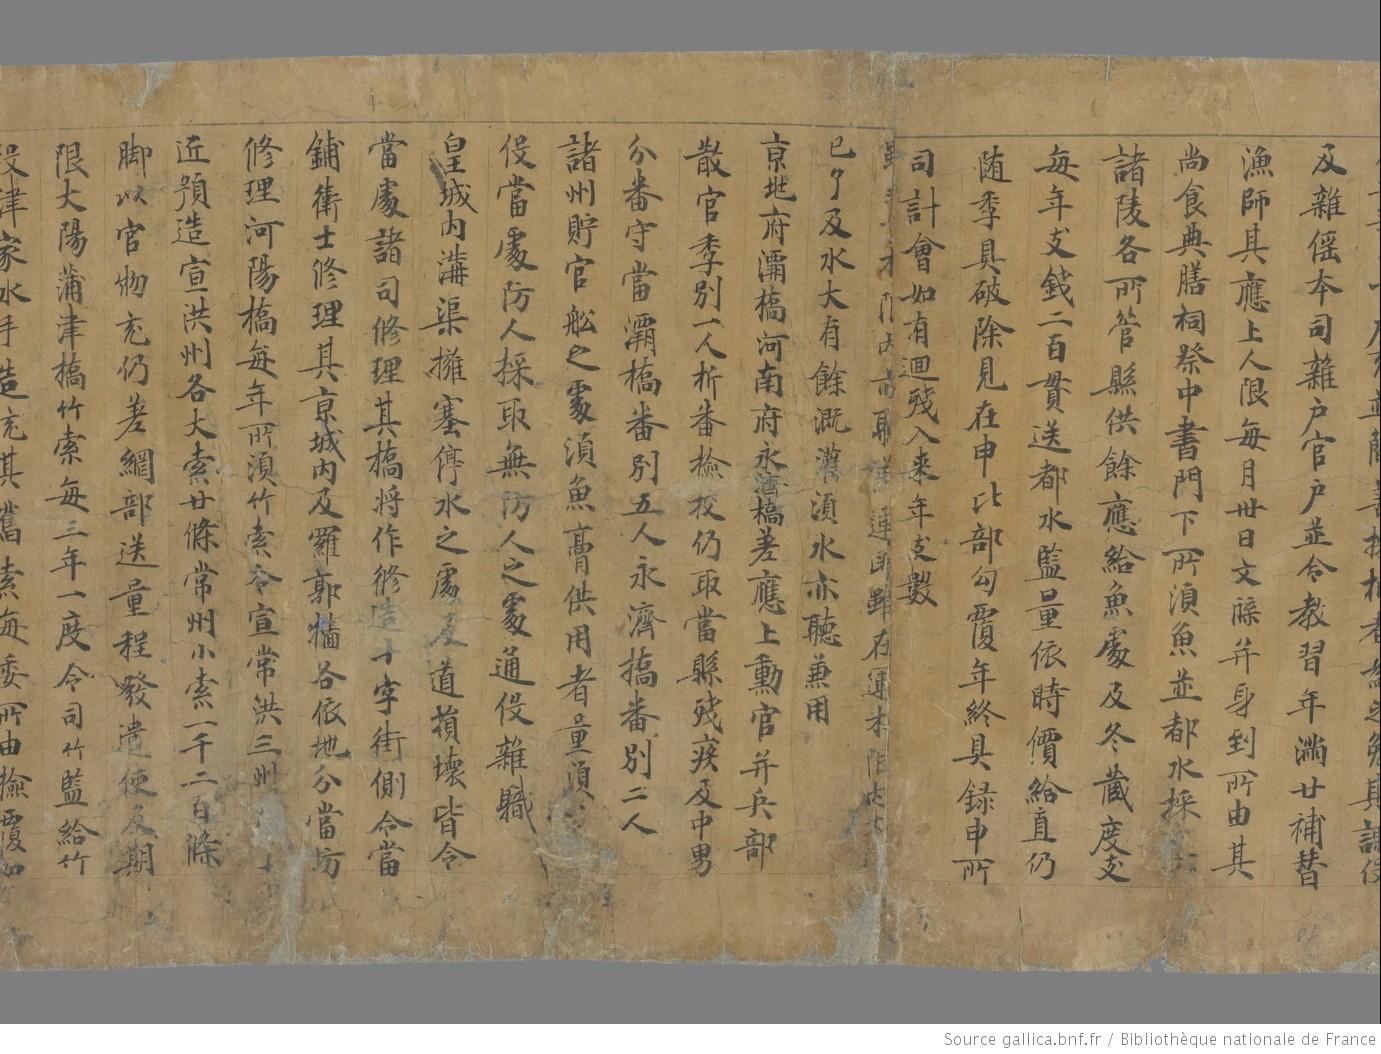 及雜傜本司雜户官户並令教習年滿廿補替
漁師其應上人限每月卅日文牒并身到所由其
尚食典膳祠祭中書門下所湏魚並都水採
諸陵各所管縣供餘應給魚處及冬藏度支
每年支錢二百貫送都水監量依時價給直仍
随季具破除見在申比部勾覆年終具録申所
司計會如有迴殘入来年支數
雖在運水限内
已了及水大有餘溉灌湏水亦聽兼用
京兆府灞橋河南府永濟橋差應上勳官并兵部
散官季別一人折番檢校仍取當縣殘疾及中男
分番守當灞橋番別五人永濟橋番別二人
諸州貯官舩之處湏魚膏供用者量湏
役當處防人採取無防人之處通役雜職
皇城内溝渠擁塞停水之處及道損壞皆令
當處諸司修理其橋將作修造十字街側令當
鋪衛士修理其京城内及羅郭牆各依地分當坊
修理河陽橋每年所湏竹索令宣常洪三州
近預造宣洪州各大索廿條常州小索一千二百條
脚以官物充仍差綱部送量程發遣使及期
限大陽蒲津橋竹索每三年一度令司竹監給竹
役津家水手造充其舊索每委所由檢覆如